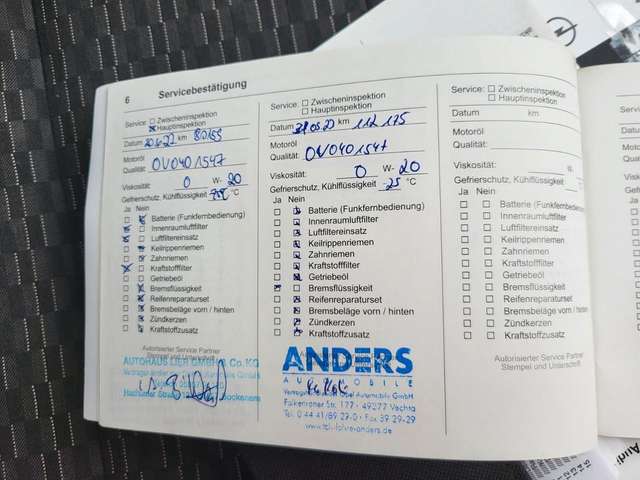 6 Servicebestätigung
Service: Zwischeninspektion
Hauptinspektion
Datum km
Motoröl
Qualität: OV0401547
Viskosität: 0 W- 20
Gefrierschutz, Kühlflüssigkeit °C
Ja Nein
Batterie (Funkfernbedienung)
Innenraumluftfilter
Luftfiltereinsatz
Keilrippenriemen
Zahnriemen
Kraftstofffilter
Getriebeöl
Bremsflüssigkeit
Reifenreparaturset
Bremsbeläge vorn / hinten
Zündkerzen
Kraftstoffzusatz
Autorisierter Service Partner
Stempel und Unterschrift
AUTOHAUS
Service: Zwischeninspektion
Hauptinspektion
Datum km 112 175
Motoröl
Qualität: OV0401547
Viskosität: 0 W- 20
Gefrierschutz, Kühlflüssigkeit -25 °C
Ja Nein
Batterie (Funkfernbedienung)
Innenraumluftfilter
Luftfiltereinsatz
Keilrippenriemen
Zahnriemen
Kraftstofffilter
Getriebeöl
Bremsflüssigkeit
Reifenreparaturset
Bremsbeläge vorn / hinten
Zündkerzen
Kraftstoffzusatz
ANDERS
AUTOMOBILE
Falkenroner Str. 177 · 49277 Vechta
Service: Zwischeninspektion
Hauptinspektion
Datum km
Motoröl
Qualität:
Viskosität: W-
Gefrierschutz, Kühlflüssigkeit °C
Ja Nein
Batterie (Funkfernbedienung)
Innenraumluftfilter
Luftfiltereinsatz
Keilrippenriemen
Zahnriemen
Kraftstofffilter
Getriebeöl
Bremsflüssigkeit
Reifenreparaturset
Bremsbeläge vorn / hinten
Zündkerzen
Kraftstoffzusatz
Autorisierter Service Partner
Stempel und Unterschrift